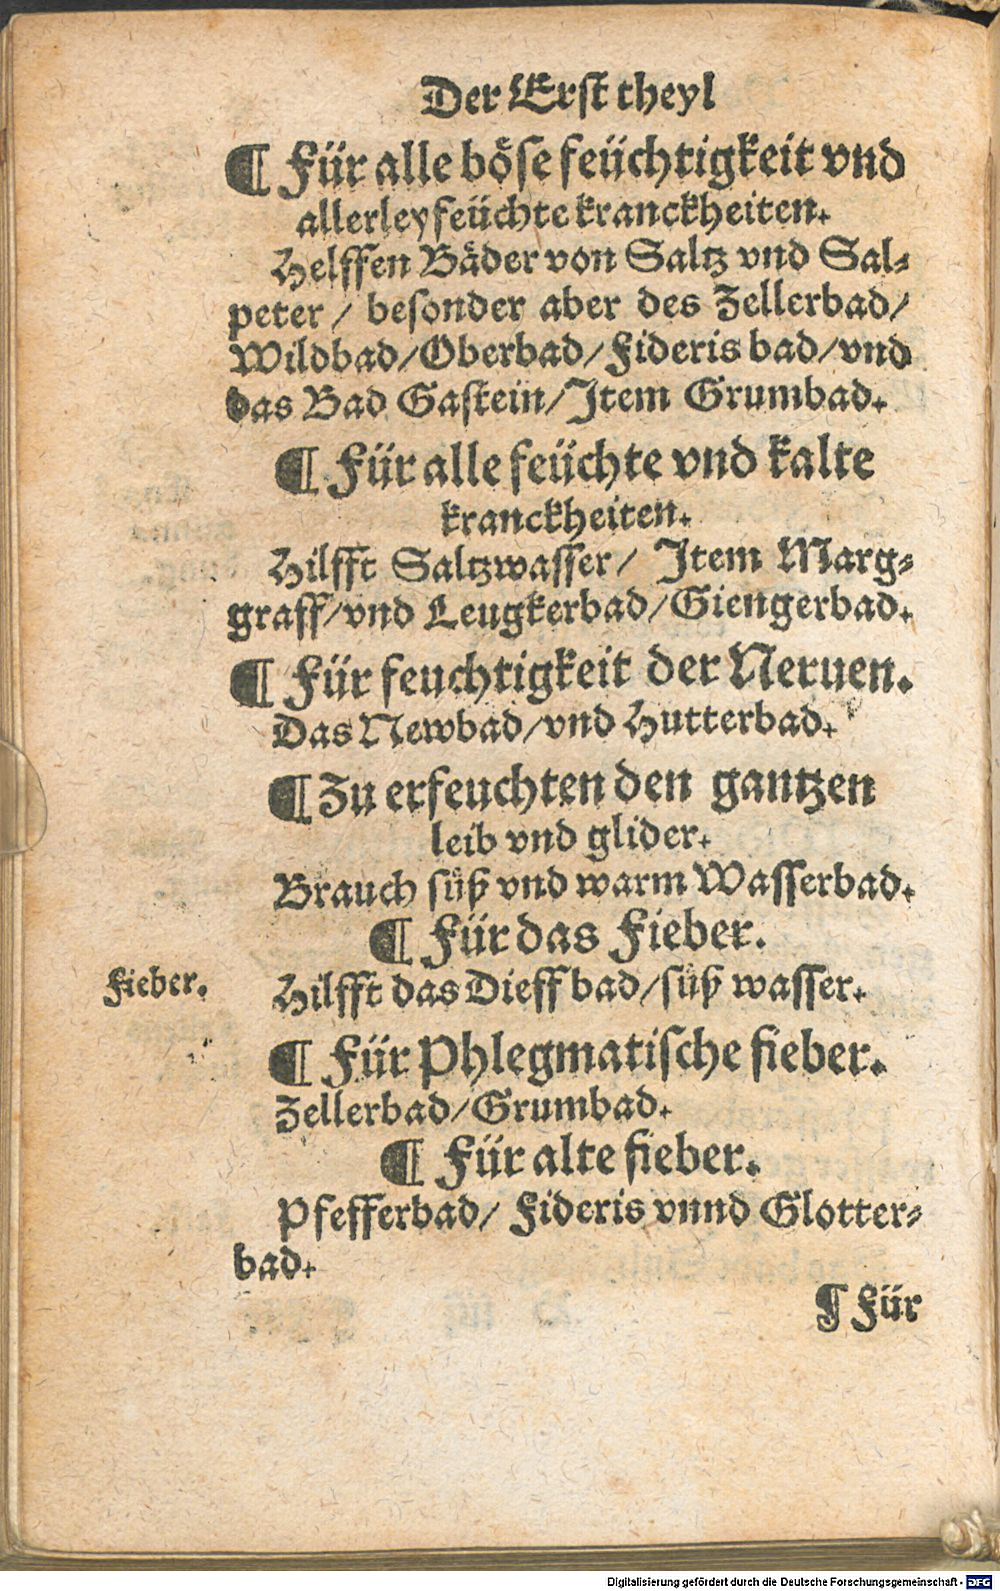 Der Erst theyl
¶ Für alle böse feüchtigkeit vnd
allerley feüchte kranckheiten.
Helffen Bäder von Saltz vnd Sal-
peter / besonder aber des Zellerbad/
Wildbad/Oberbad/Fideris bad/vnd
das Bad Gastein/Item Grumbad.
¶ Für alle feüchte vnd kalte
kranckheiten.
Hilfft Saltzwasser/ Item Marg-
graff/vnd Leugkerbad/Giengerbad.
¶ Für feuchtigkeit der Neruen.
Das Newbad/vnd Hutterbad.
¶ Zu erfeuchten den gantzen
leib vnd glider.
Brauch süß vnd warm Wasserbad.
¶ Für das Fieber.
Fieber. Hilfft das Dieff bad/süß wasser.
¶ Für Phlegmatische fieber.
Zellerbad/Grumbad.
¶ Für alte fieber.
Pfefferbad/ Fideris vnnd Glotter-
bad.
¶ Für
Digitalisierung gefördert durch die Deutsche Forschungsgemeinschaft - DFG